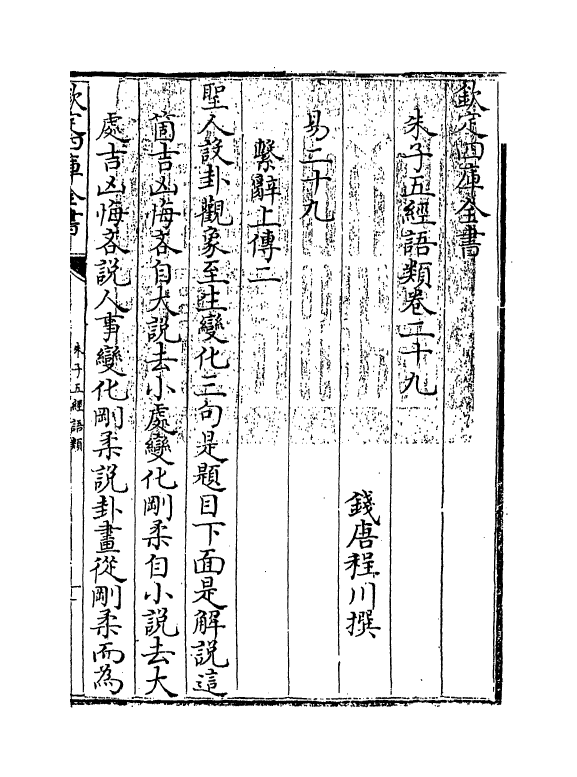 欽定四庫全書
朱子五經語類卷二十九
錢唐程川撰
易二十九
繫辭上傳二
聖人設卦觀象至生變化三句是題目下面是解說這
箇吉凶悔吝自大說去小處變化剛柔自小說去大
處吉凶悔吝說人事變化剛柔說卦畫從剛柔而為
欽定四庫全書
朱子五經語類
一